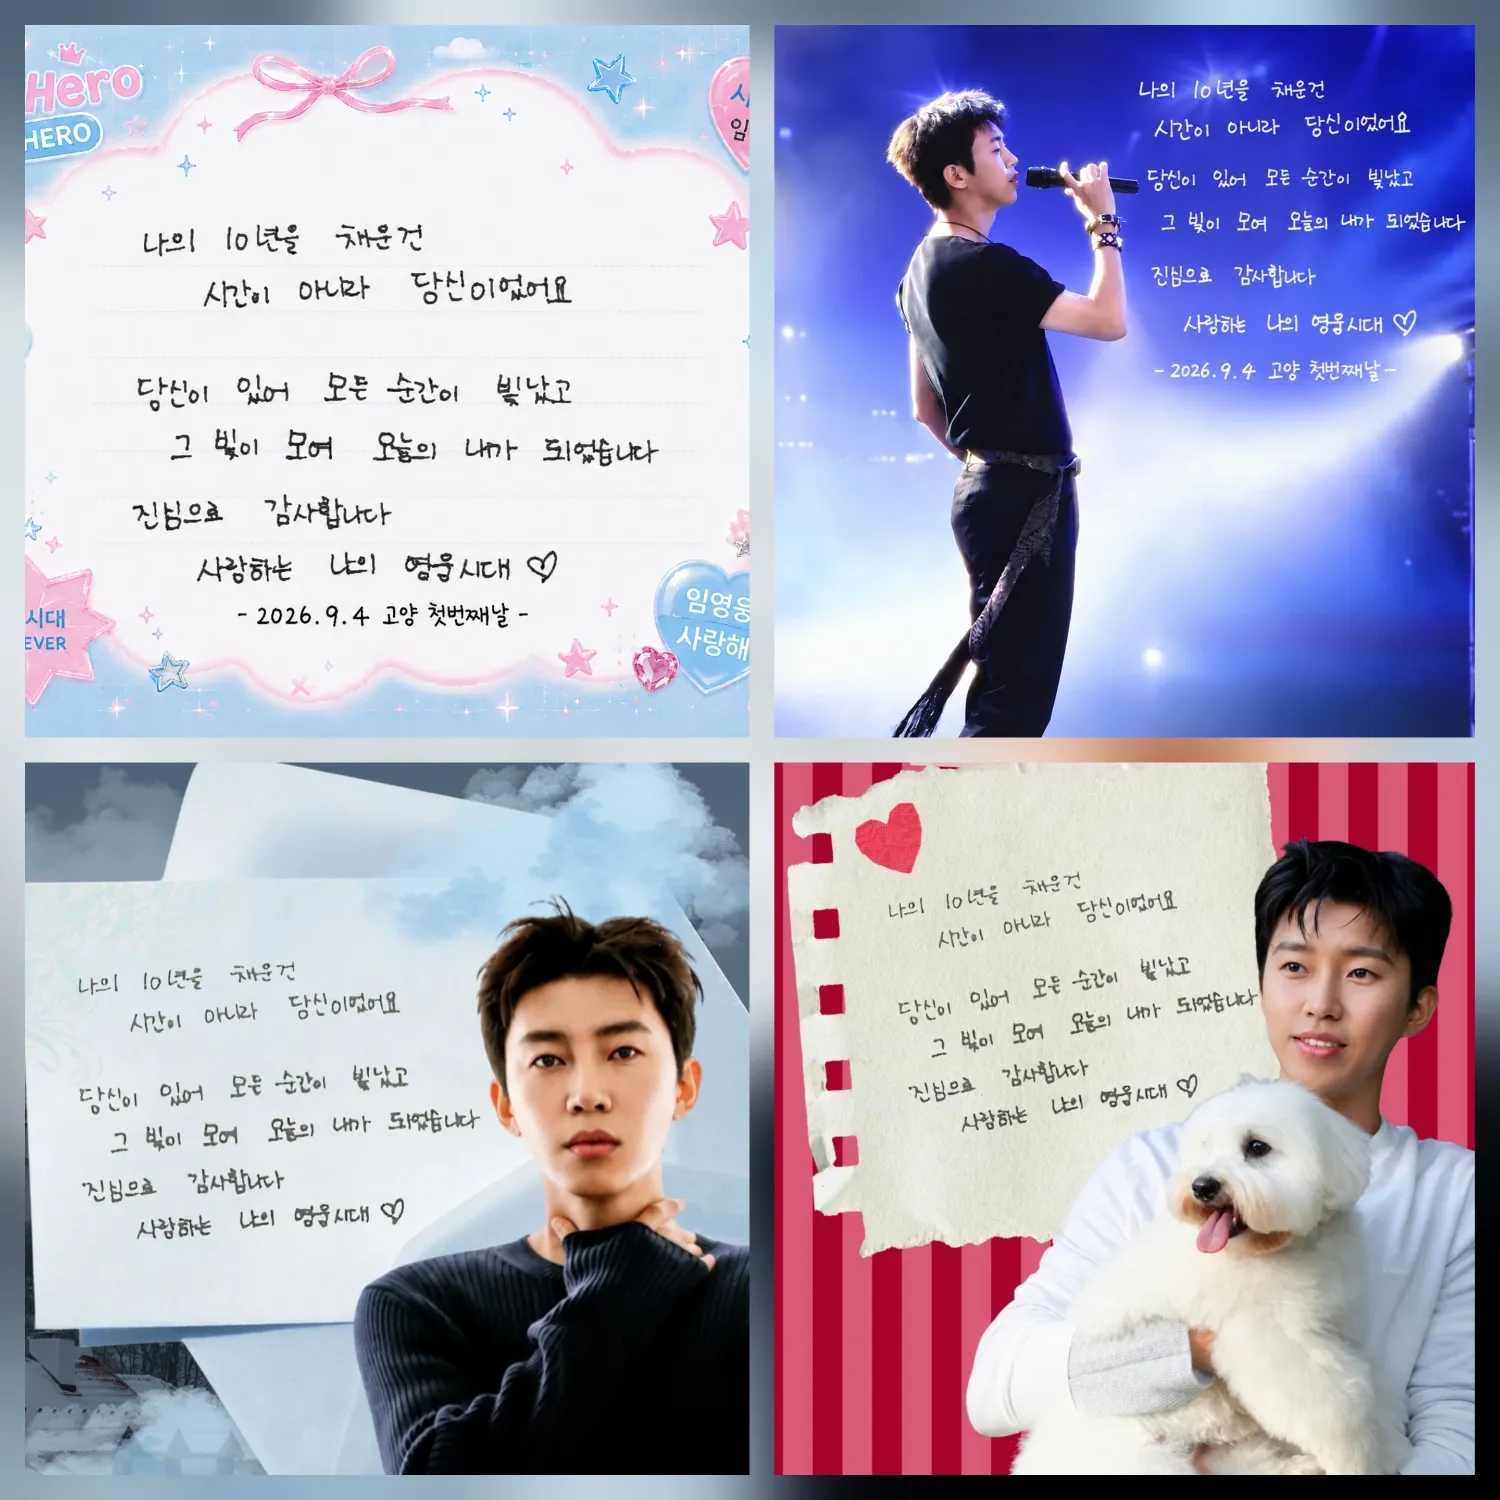 Hero
HERO
나의 10년을 채운건
시간이 아니라 당신이었어요
당신이 있어 모든 순간이 빛났고
그 빛이 모여 오늘의 내가 되었습니다
진심으로 감사합니다
사랑하는 나의 영웅시대 ♡
- 2026.9.4 고양 첫번째날 -
시대
EVER
임영웅
사랑해
나의 10년을 채운건
시간이 아니라 당신이었어요
당신이 있어 모든 순간이 빛났고
그 빛이 모여 오늘의 내가 되었습니다
진심으로 감사합니다
사랑하는 나의 영웅시대 ♡
- 2026.9.4 고양 첫번째날 -
나의 10년을 채운건
시간이 아니라 당신이었어요
당신이 있어 모든 순간이 빛났고
그 빛이 모여 오늘의 내가 되었습니다
진심으로 감사합니다
사랑하는 나의 영웅시대 ♡
나의 10년을 채운건
시간이 아니라 당신이었어요
당신이 있어 모든 순간이 빛났고
그 빛이 모여 오늘의 내가 되었습니다
진심으로 감사합니다
사랑하는 나의 영웅시대 ♡